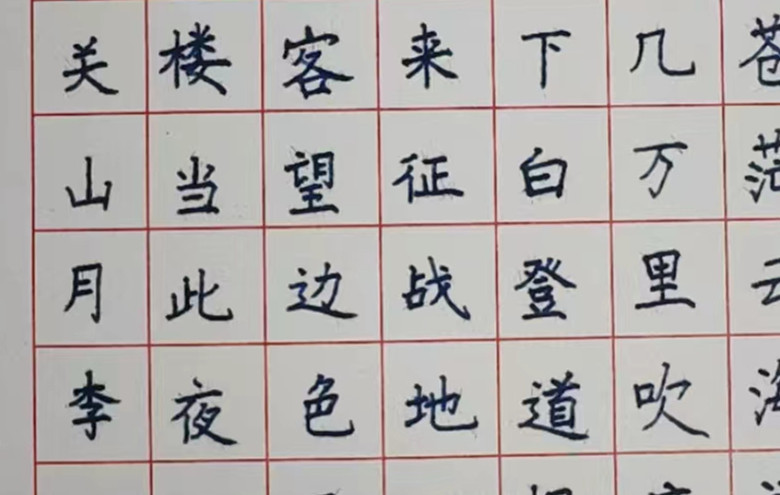 苍茫云海
几万里吹
下白登道
来征战地
客望边色
楼当此夜
关山月李